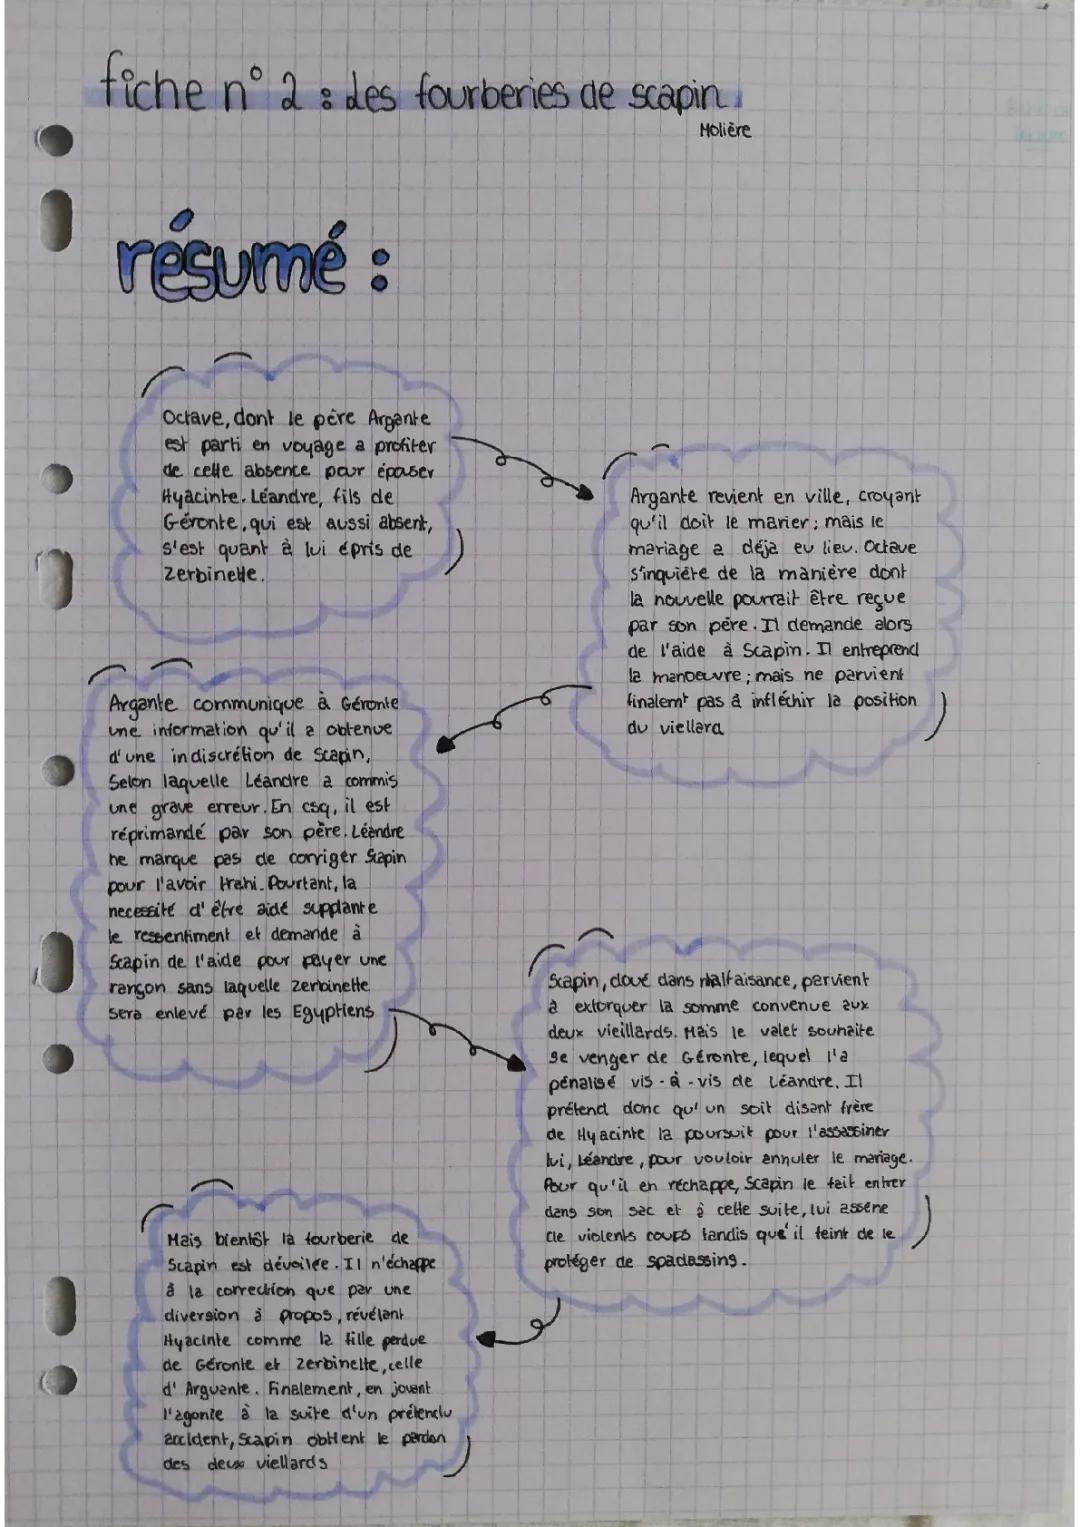 fiche n° 2 : des fourberies de scapin.
Molière
résumé :
Octave, dont le père Argante
est parti en voyage a profiter
de cette absence pour épouser
Hyacinte. Léandre, fils de
Géronte, qui est aussi absent,
s'est quant à lui épris de
Zerbinette.
Argante revient en ville, croyant
qu'il doit le marier ; mais le
mariage a déja eu lieu. Octave
s'inquiète de la manière dont
la nouvelle pourrait être reçue
par son père. Il demande alors
de l'aide à Scapin. Il entreprend
la manoeuvre ; mais ne parvient
finalemt pas à infléchir la position
du viellard
Argante communique à Géronte
une information qu'il a obtenue
d'une indiscrétion de Scapin,
Selon laquelle Léandre a commis
une grave erreur. En csq, il est
réprimandé par son père. Léandre
ne manque pas de corriger Scapin
pour l'avoir trahi. Pourtant, la
necessité d'être aidé supplante
le ressentiment et demande à
Scapin de l'aide pour payer une
rançon sans laquelle Zerbinette
sera enlevé par les Egyptiens
Scapin, doué dans malfaisance, parvient
à extorquer la somme convenue aux
deux vieillards. Mais le valet souhaite
se venger de Géronte, lequel l'a
pénalisé vis-à-vis de Léandre. Il
prétend donc qu'un soit disant frère
de Hyacinte la poursuit pour l'assassiner
lui, Léandre, pour vouloir annuler le mariage.
Pour qu'il en réchappe, Scapin le fait entrer
dans son sac et à cette suite, lui assène
de violents coups tandis que'il feint de le
protéger de spadassins.
Mais bientôt la fourberie de
Scapin est dévoilée. Il n'échappe
à la correction que par une
diversion à propos, révélant
Hyacinte comme la fille perdue
de Géronte et Zerbinette, celle
d'Arguante. Finalement, en jouant
l'agonie à la suite d'un prétendu
accident, Scapin obtient le pardon
des deux viellards